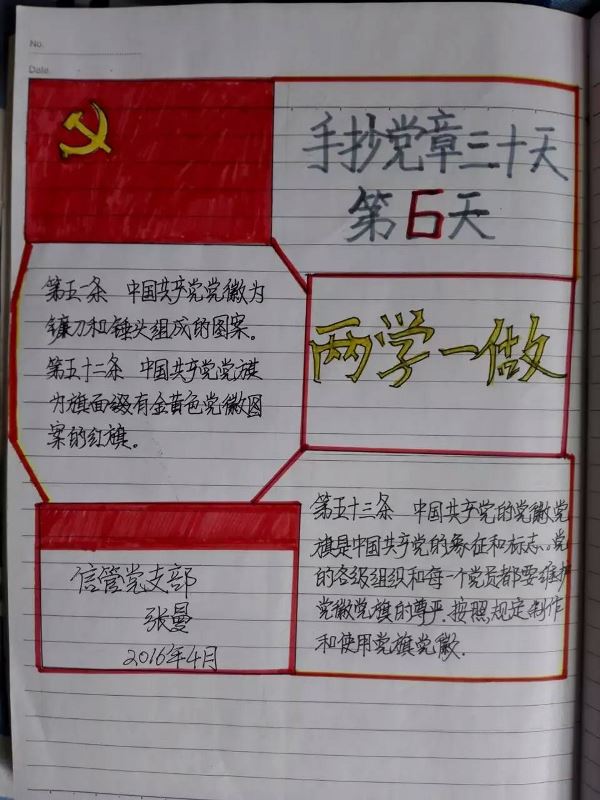 No.
Date
手抄党章三十天
第6天
第五一条 中国共产党党徽为
镰刀和锤头组成的图案。
第五十二条 中国共产党党旗
为旗面缀有金黄色党徽图
案的红旗。
两学一做
第五十三条 中国共产党的党徽党
旗是中国共产党的象征和标志、党
的各级组织和每一个党员都要维护
党徽党旗的尊严.按照规定制作
和使用党旗党徽.
信管党支部
张曼
2016年4月